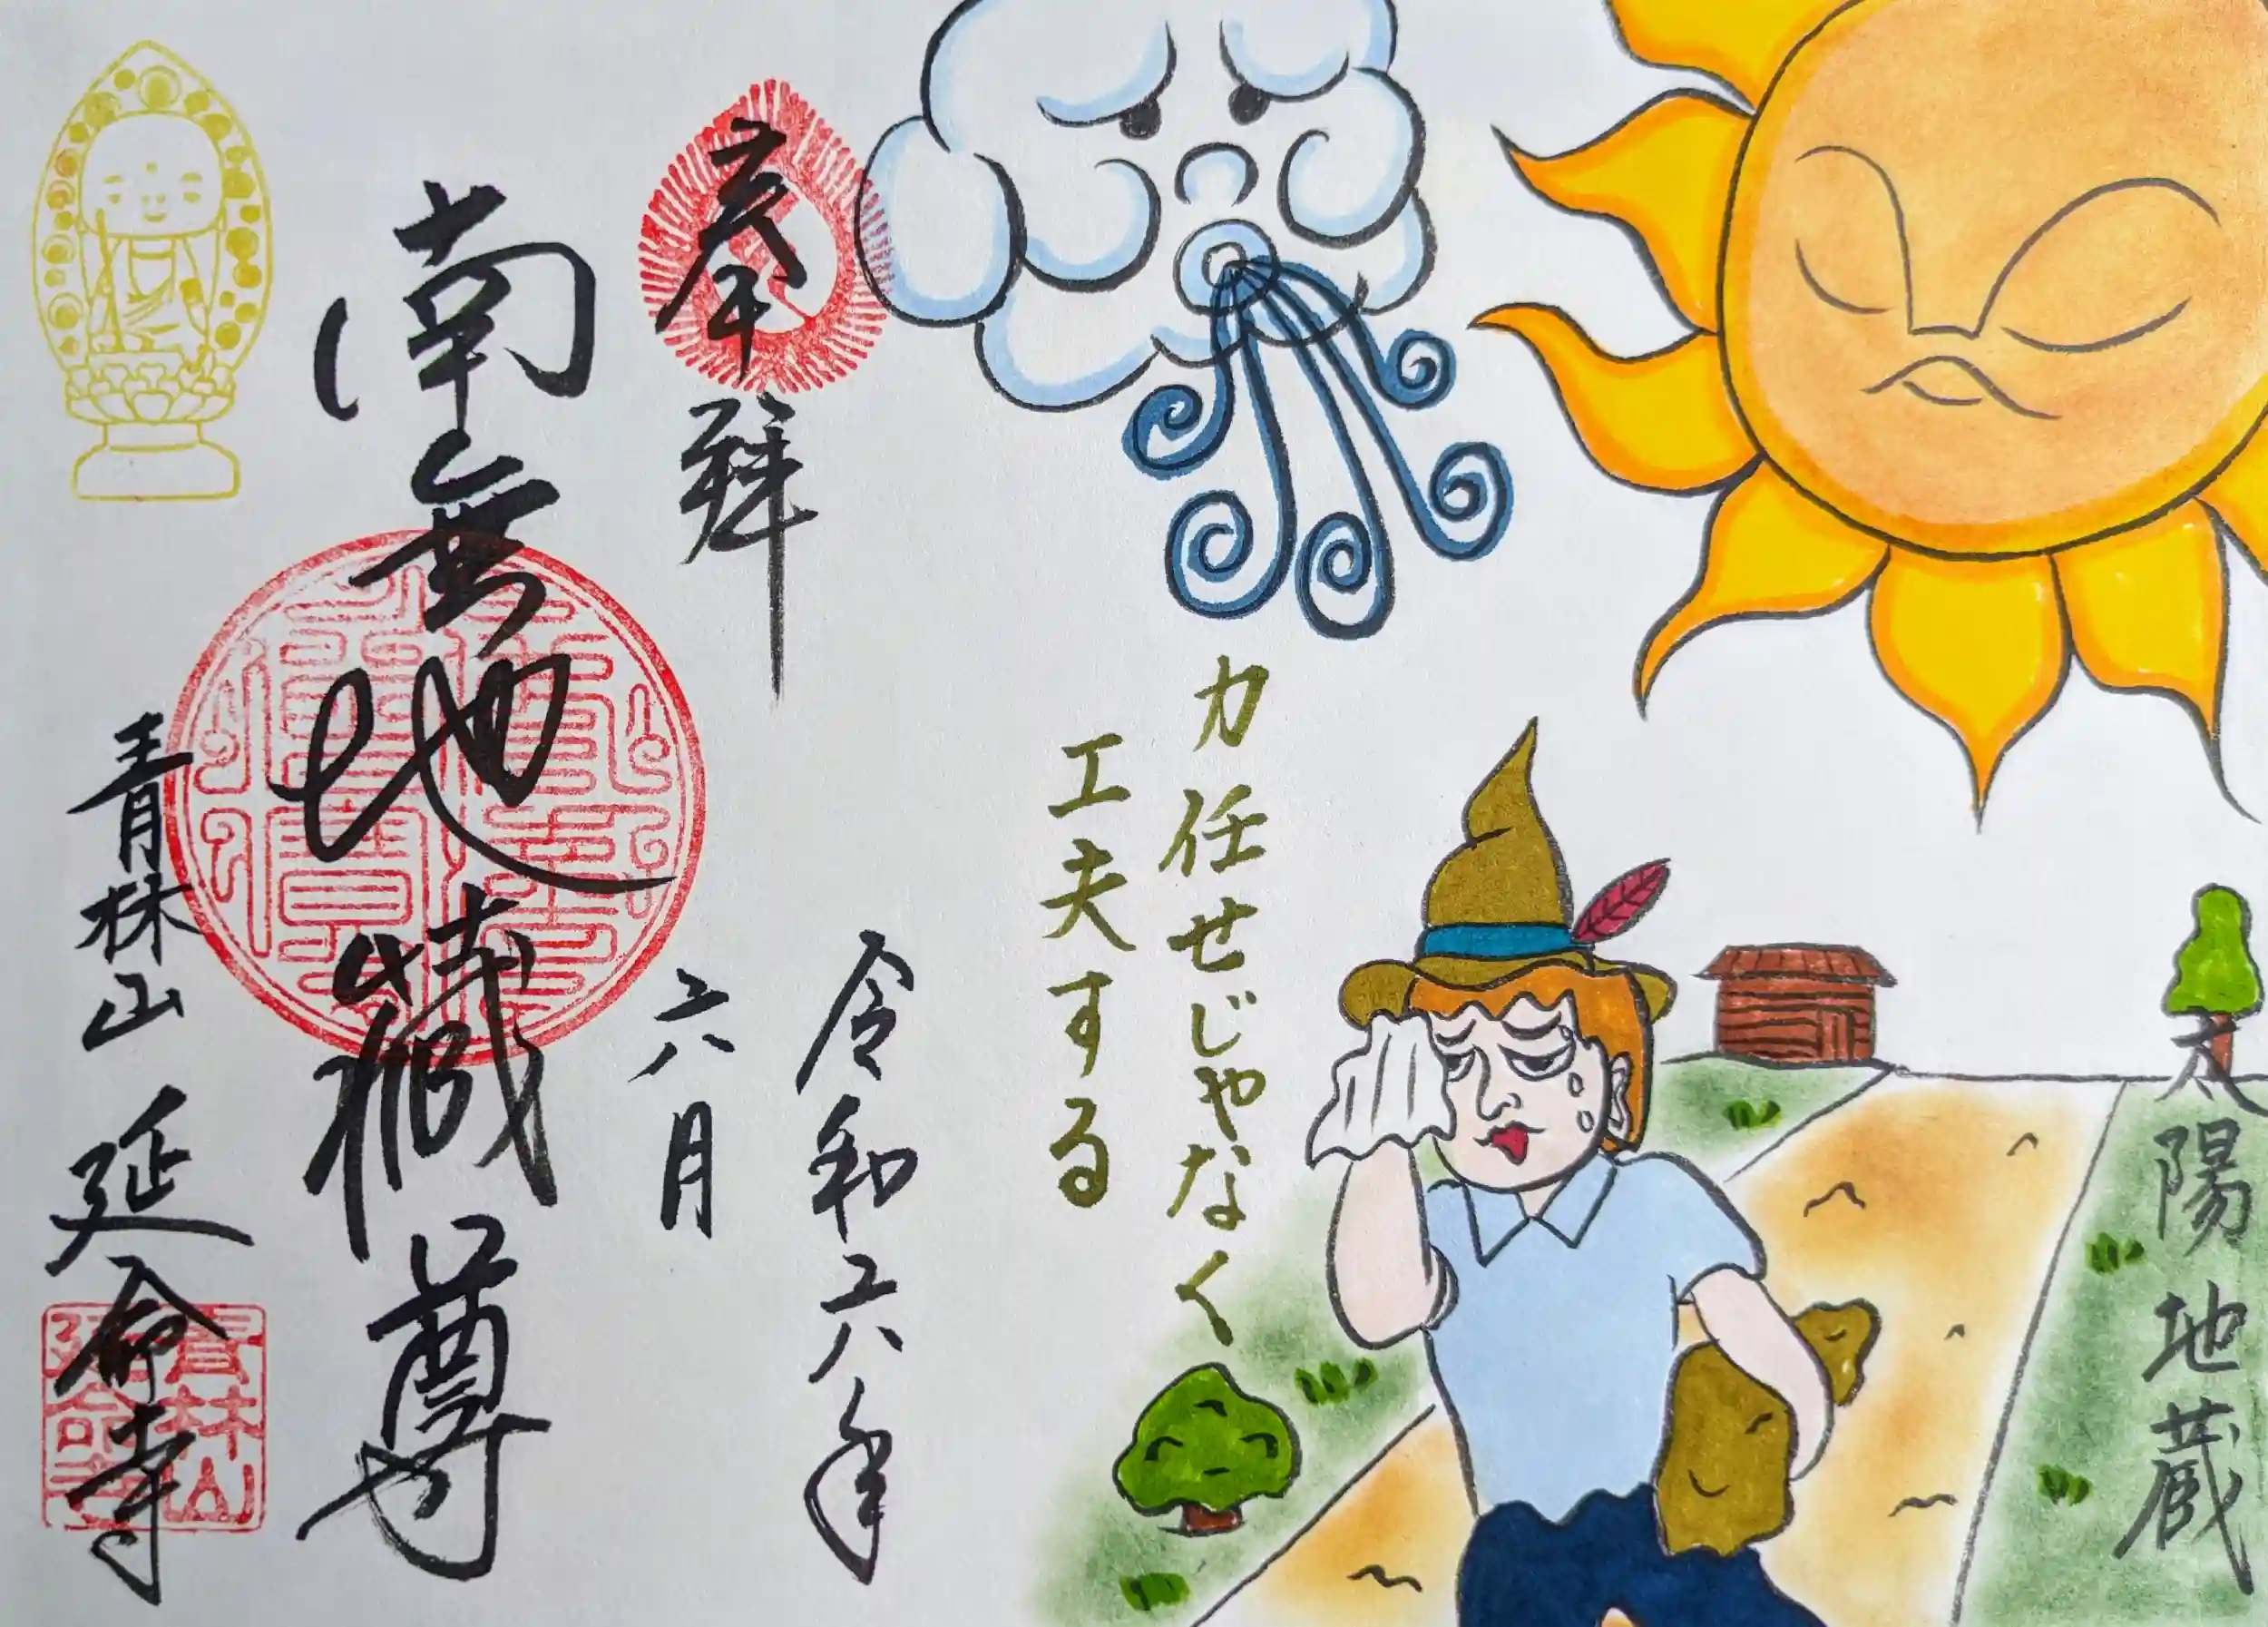 太陽地蔵
力任せじゃなく
工夫する
令和六年
六月
奉拝
南無地蔵尊
青林山 延命寺
青林山
延命寺